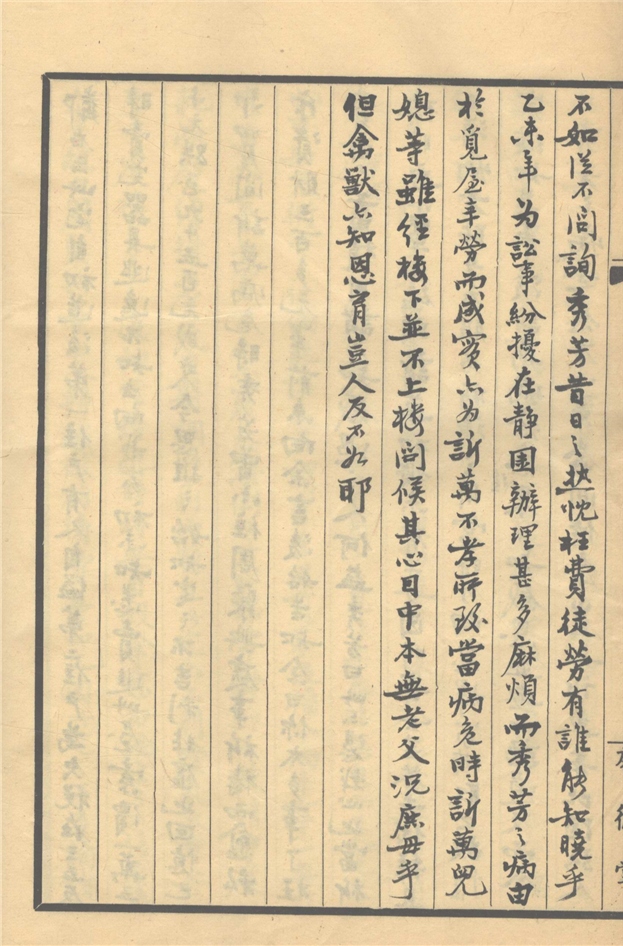 不如從不問詢秀芳昔日之熱忱枉費徒勞有誰能知曉乎
乙未年為訟事紛擾在靜園辦理甚多麻煩而秀芳之病由
於覓屋辛勞而感實亦為訢萬不孝所致當病危時訢萬兒
媳等雖經樓下並不上樓問候其心目中本無老父況庶母乎
但禽獸亦知恩育豈人反不如耶